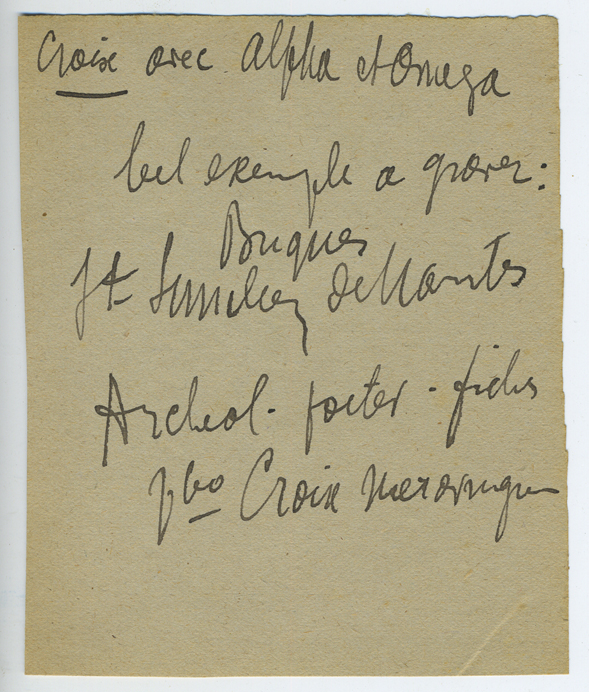 Croix avec Alpha et Omega
bel exemple a graver :
Briques
St Similien de Nantes
Archeol. poitev. fiches
vbo Croix merovingien